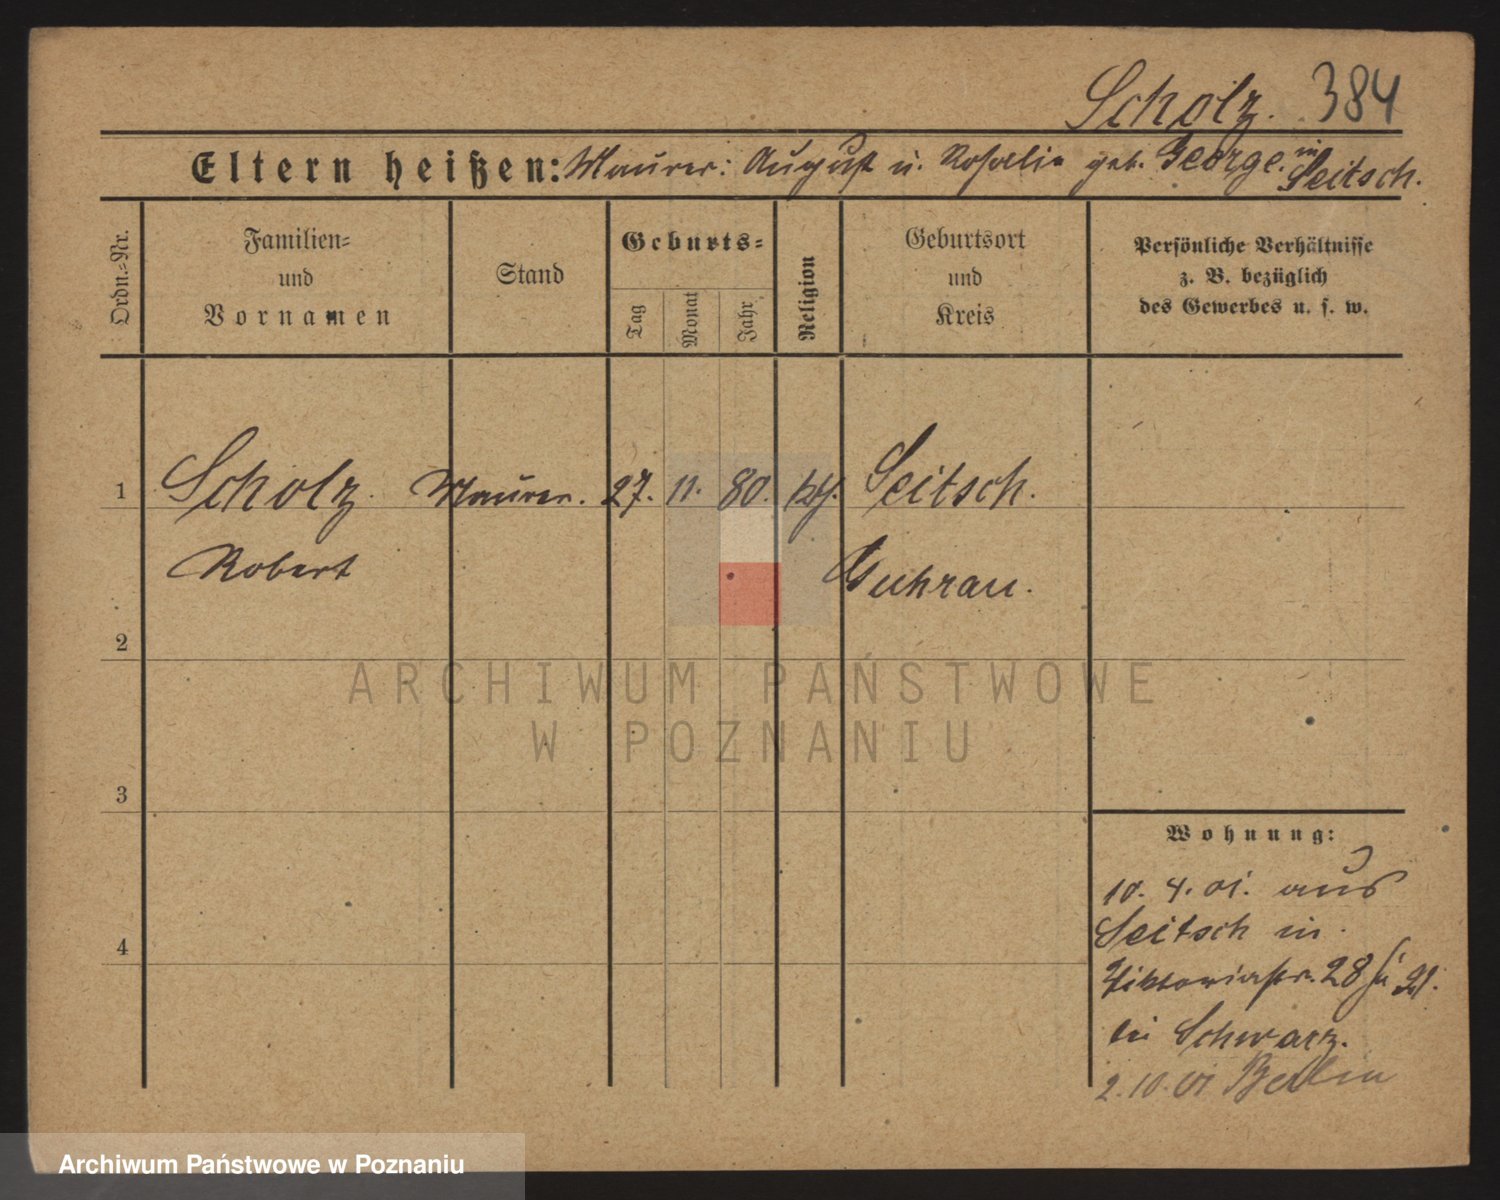 Scholz. 384
Eltern heißen: Maurer: August u. Rosalie geb. George. in Seitsch.
Ordn.-Nr.
Familien-
und
Vornamen
Stand
Geburts-
Tag
Monat
Jahr
Religion
Geburtsort
und
Kreis
Persönliche Verhältnisse
z. B. bezüglich
des Gewerbes u. s. w.
1 Scholz. Maurer. 27. 11. 80. kth. Seitsch.
Robert Guhrau.
2
3
4
Wohnung:
10. 4. 01. aus
Seitsch in
Viktoriastr. 28
bei Schwarz.
2. 10. 01 Berlin
ARCHIWUM PAŃSTWOWE
W POZNANIU
Archiwum Państwowe w Poznaniu